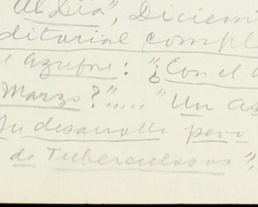 Al Día", Diciem
ditorial compl
e Azufre: "¿Con el a
Marzo?"....."Un as
Su desarrollo pero
de Tuberculosos".